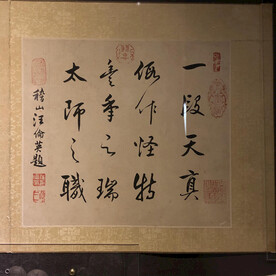 一段天真
作怪特
豐年之瑞
太師之職
山汪英題